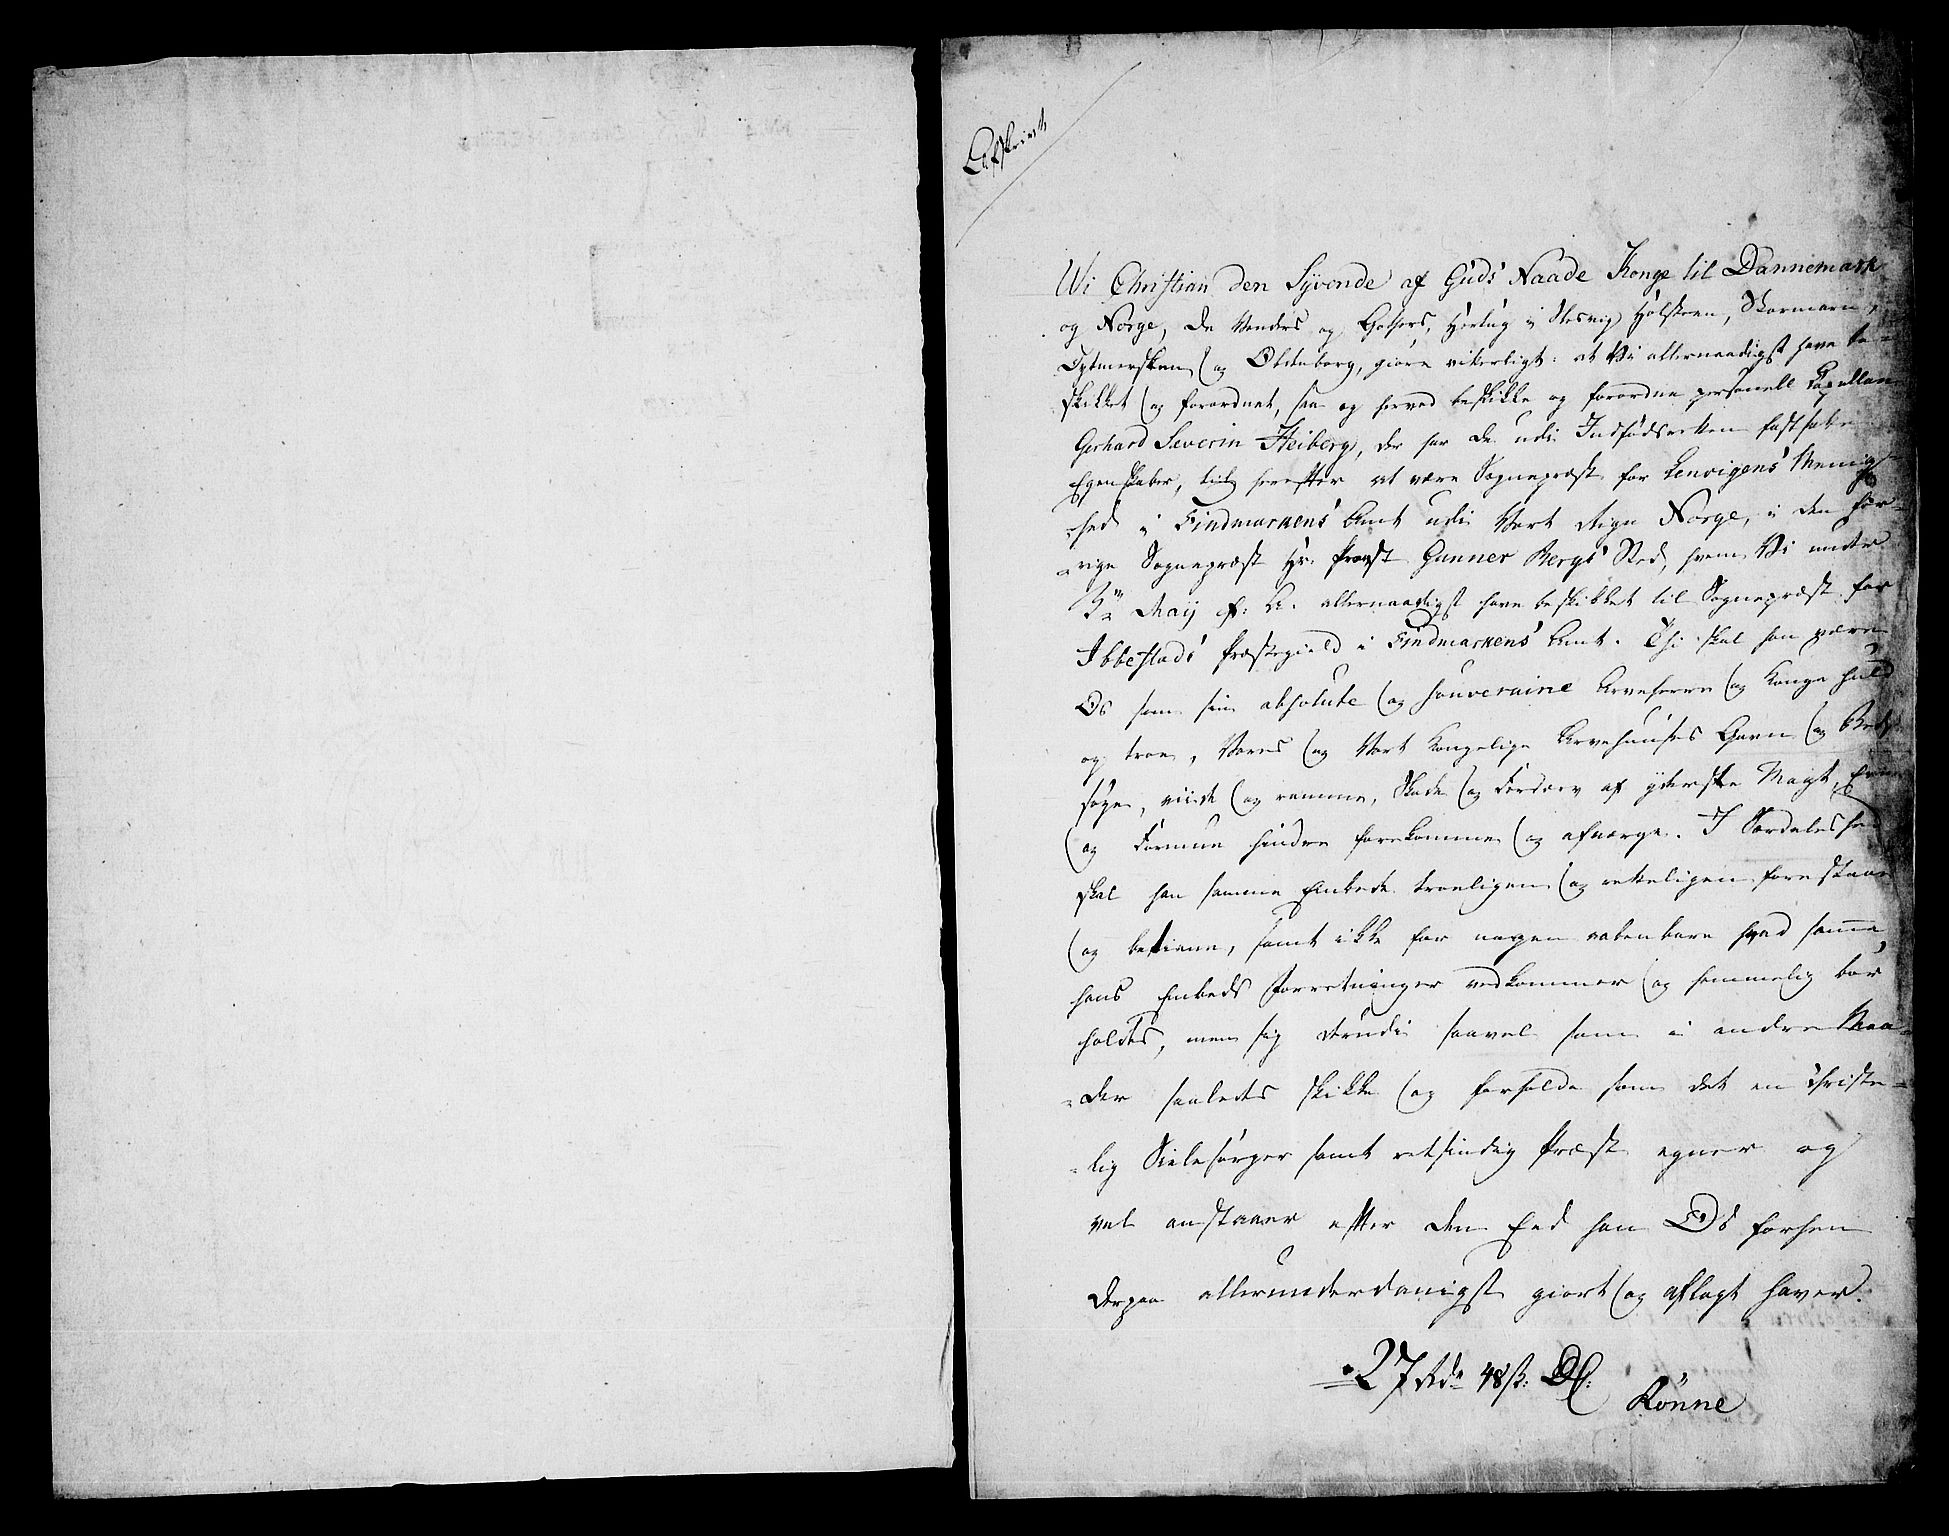 Afskrivt
Wi Christian den Syvende af Guds Naade Konge til Dannemark
og Norge, de Venders og Gothers, Hertug i Slesvig Holsteen, Stormarn,
Dytmersken og Oldenborg, giøre vitterligt: at Vi allernaadigst have be-
skikket og forordnet, saa og herved beskikke og forordne personell Capellan
Gerhard Severin Heiberg, der har de udi Indfødsretten fastsatte
Egenskaber, til herefter at være Sognepræst for Lenvigens Menig-
hed i Findmarkens Amt udi Vort Rige Norge, i den for-
-rige Sognepræst Hr. Provst Gunner Bergs Sted, hvem Vi under
3die Maij d: A. allernaadigst have beskikket til Sognepræst for
Ibbestads Præstegield i Findmarkens Amt. Thi skal han være
Os som sin absolute og souveraine Arveherre og Konge huld
og troe, Vores og Vort Kongelige Arvehuuses Gavn og Beste
søge, viide og ramme, Skade og Fordærv af yderste Magt, Evne
og Formue hindre forekomme og afværge. I Særdeleshed
skal han samme Embede troeligen og retteligen forestaae
og betiene, samt ikke for nogen aabenbare hvad samme
hans Embeds Forretninger vedkommer og hemmelig bør
holdes, men sig derudi saavel som i andre Maa-
-der saaledes skikke og forholde som det en Christe-
-lig Sielesørger samt retsindig Præst egner og
vel anstaaer efter den Eed han Os forhen
derpaa allerunderdanigst giort og aflagt haver.
27 Rdr 48 ß: DC:
Rønne